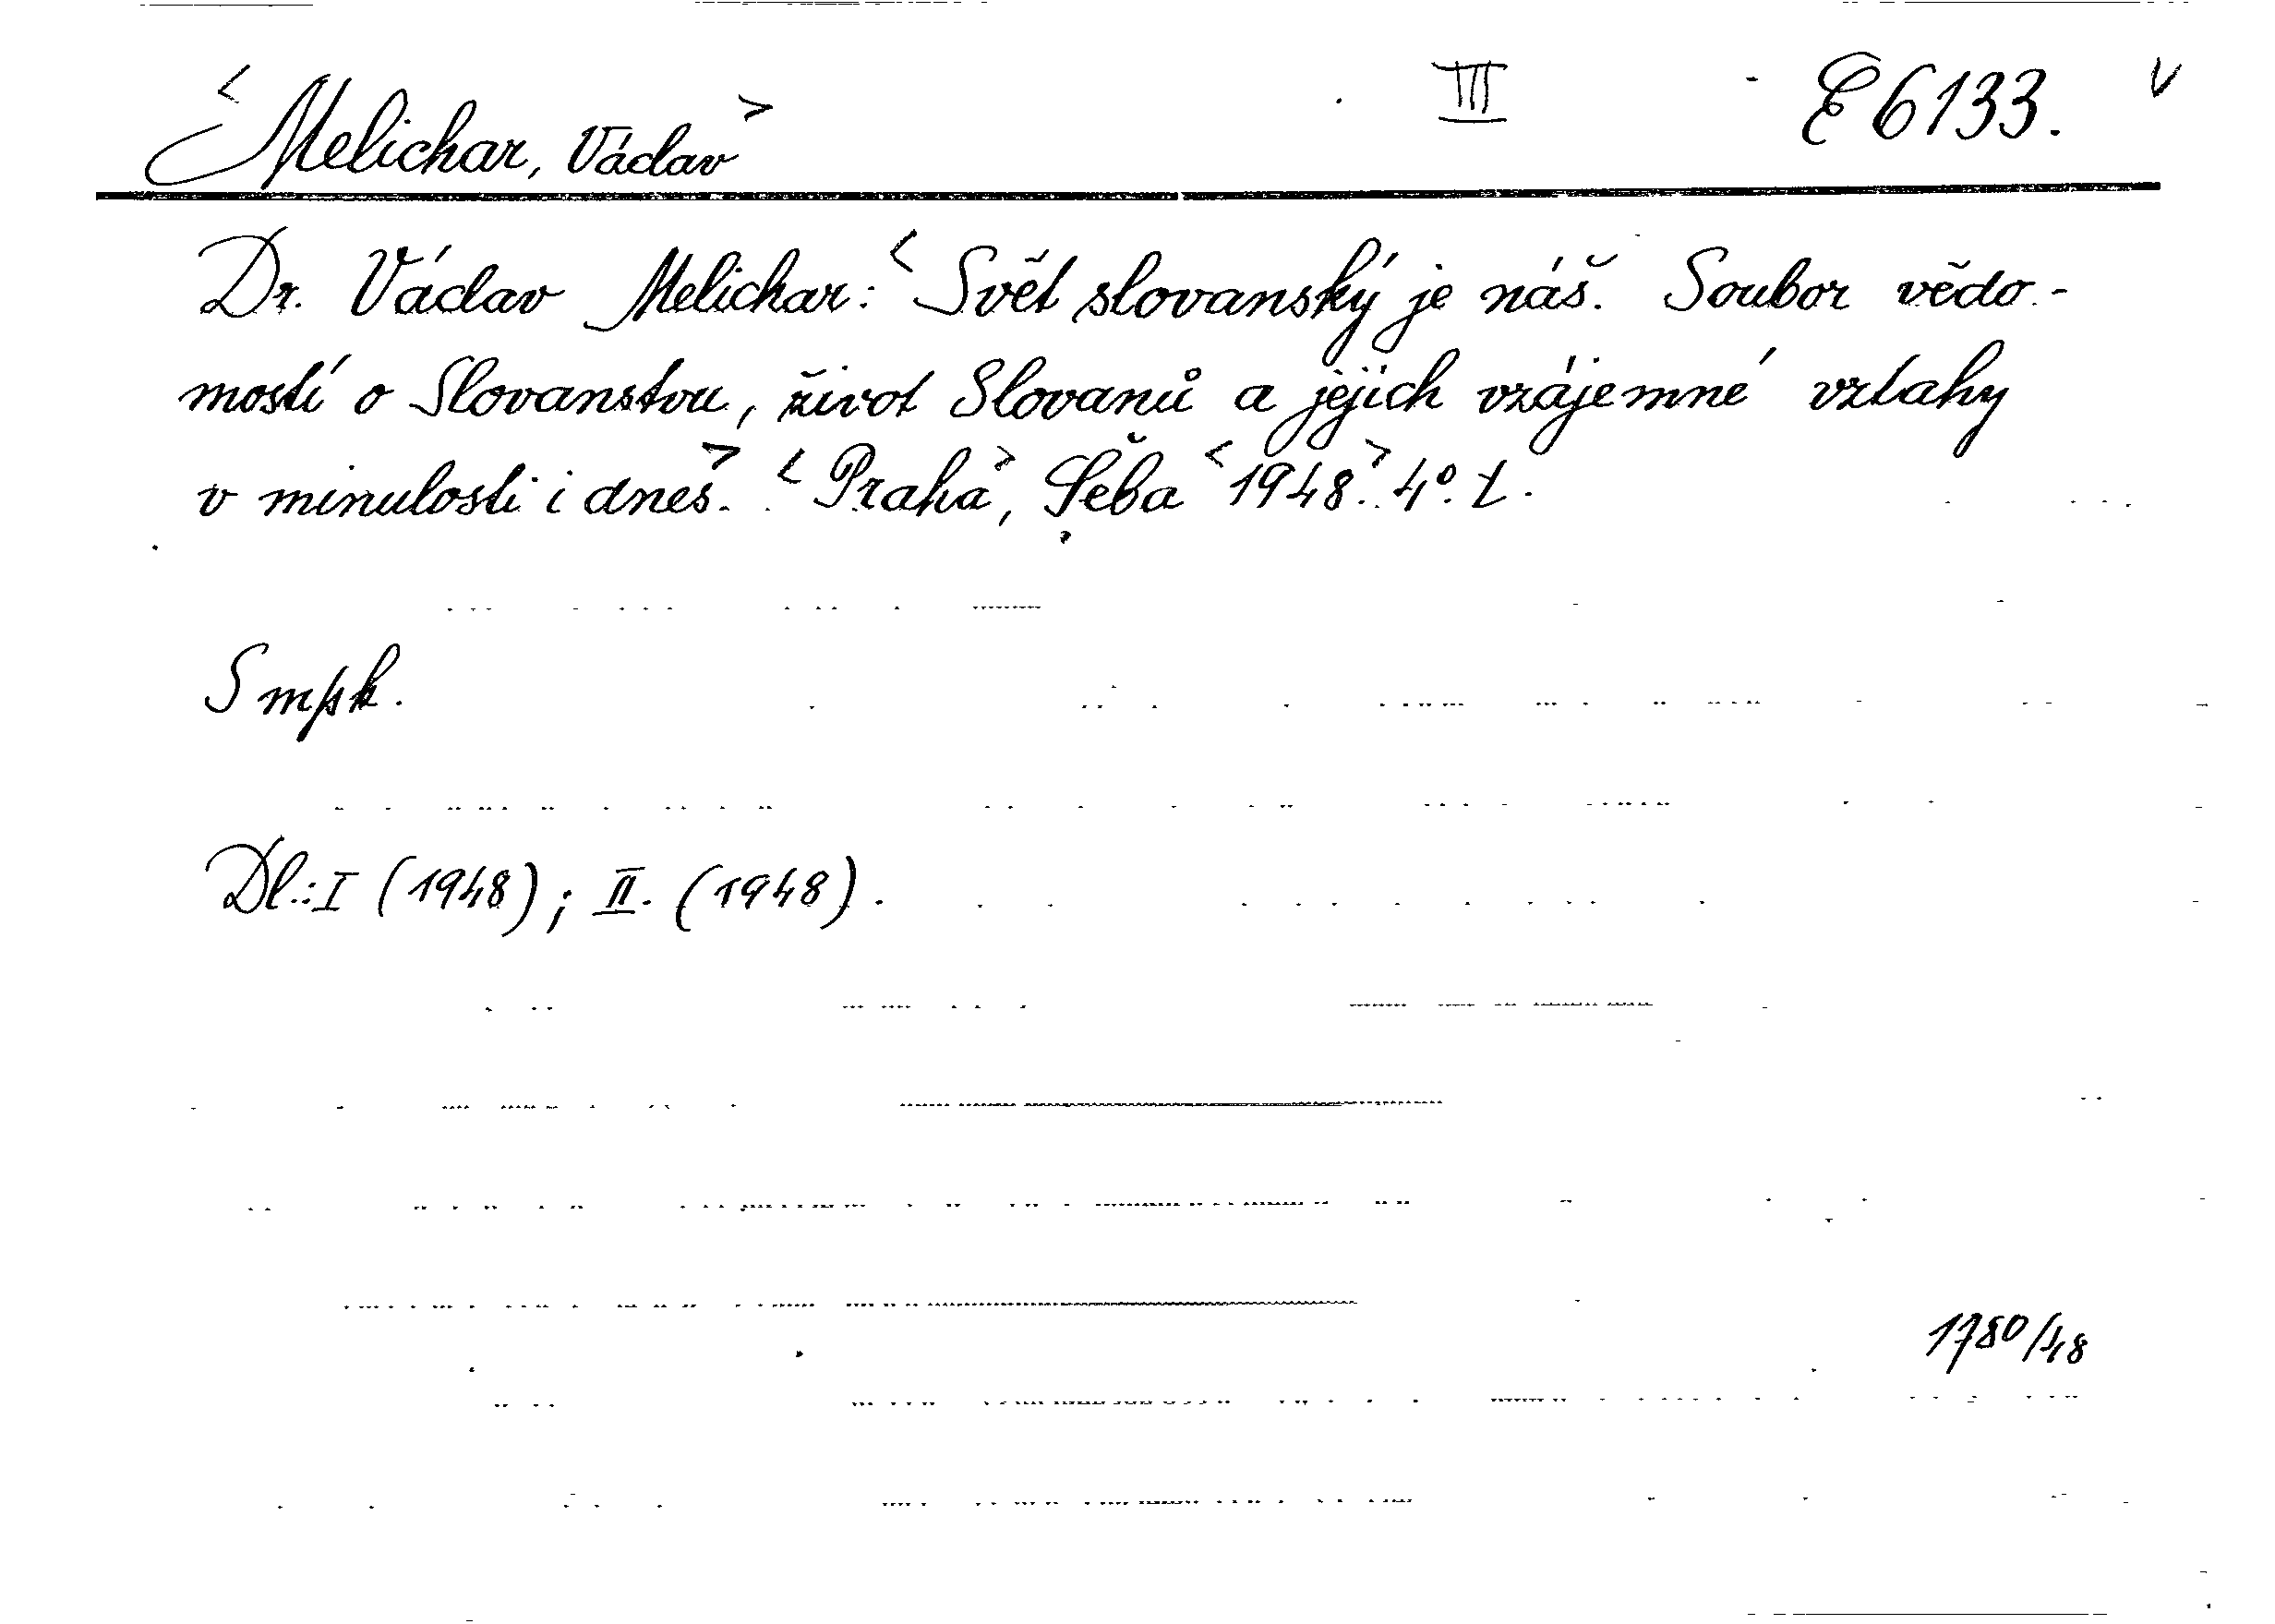 <Melichar, Václav> III E 6133. v
Dr. Václav Melichar: <Svět slovanský je náš. Soubor vědo-
mostí o Slovanstvu, život Slovanů a jejich vzájemné vztahy
v minulosti i dnes.> <Praha>, Šeba <1948>. 4º.
S mpk.
Dl.: I (1948); II. (1948).
1780/48